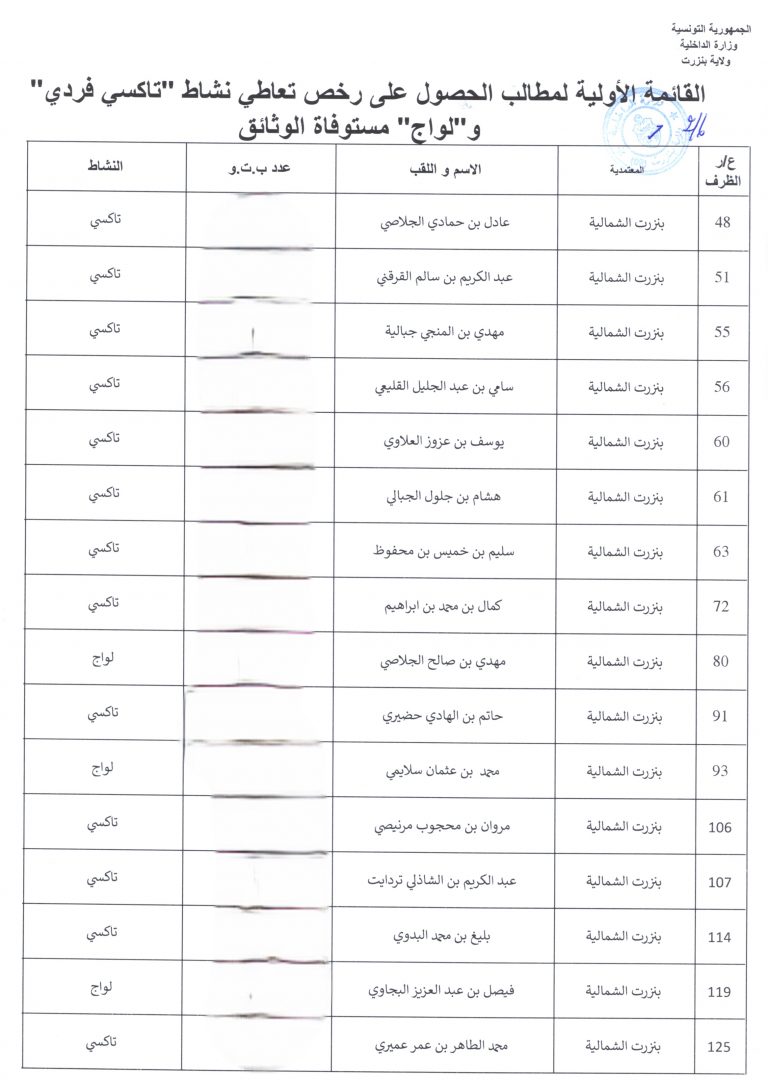 الجمهورية التونسية
وزارة الداخلية
ولاية بنزرت
القائمة الأولية لمطالب الحصول على رخص تعاطي نشاط "تاكسي فردي"
و"لواج" مستوفاة الوثائق
ع/ر الظرف المعتمدية الاسم و اللقب عدد ب.ت.و النشاط
48 بنزرت الشمالية عادل بن حمادي الجلاصي تاكسي
51 بنزرت الشمالية عبد الكريم بن سالم القرقني تاكسي
55 بنزرت الشمالية مهدي بن المنجي جبالية تاكسي
56 بنزرت الشمالية سامي بن عبد الجليل القليعي تاكسي
60 بنزرت الشمالية يوسف بن عزوز العلاوي تاكسي
61 بنزرت الشمالية هشام بن جلول الجبالي تاكسي
63 بنزرت الشمالية سليم بن خميس بن محفوظ تاكسي
72 بنزرت الشمالية كمال بن محمد بن ابراهيم تاكسي
80 بنزرت الشمالية مهدي بن صالح الجلاصي لواج
91 بنزرت الشمالية حاتم بن الهادي حضيري تاكسي
93 بنزرت الشمالية محمد بن عثمان سلايمي لواج
106 بنزرت الشمالية مروان بن محجوب مرنيصي تاكسي
107 بنزرت الشمالية عبد الكريم بن الشاذلي تردايت تاكسي
114 بنزرت الشمالية بليغ بن محمد البدوي تاكسي
119 بنزرت الشمالية فيصل بن عبد العزيز البجاوي لواج
125 بنزرت الشمالية محمد الطاهر بن عمر عميري تاكسي